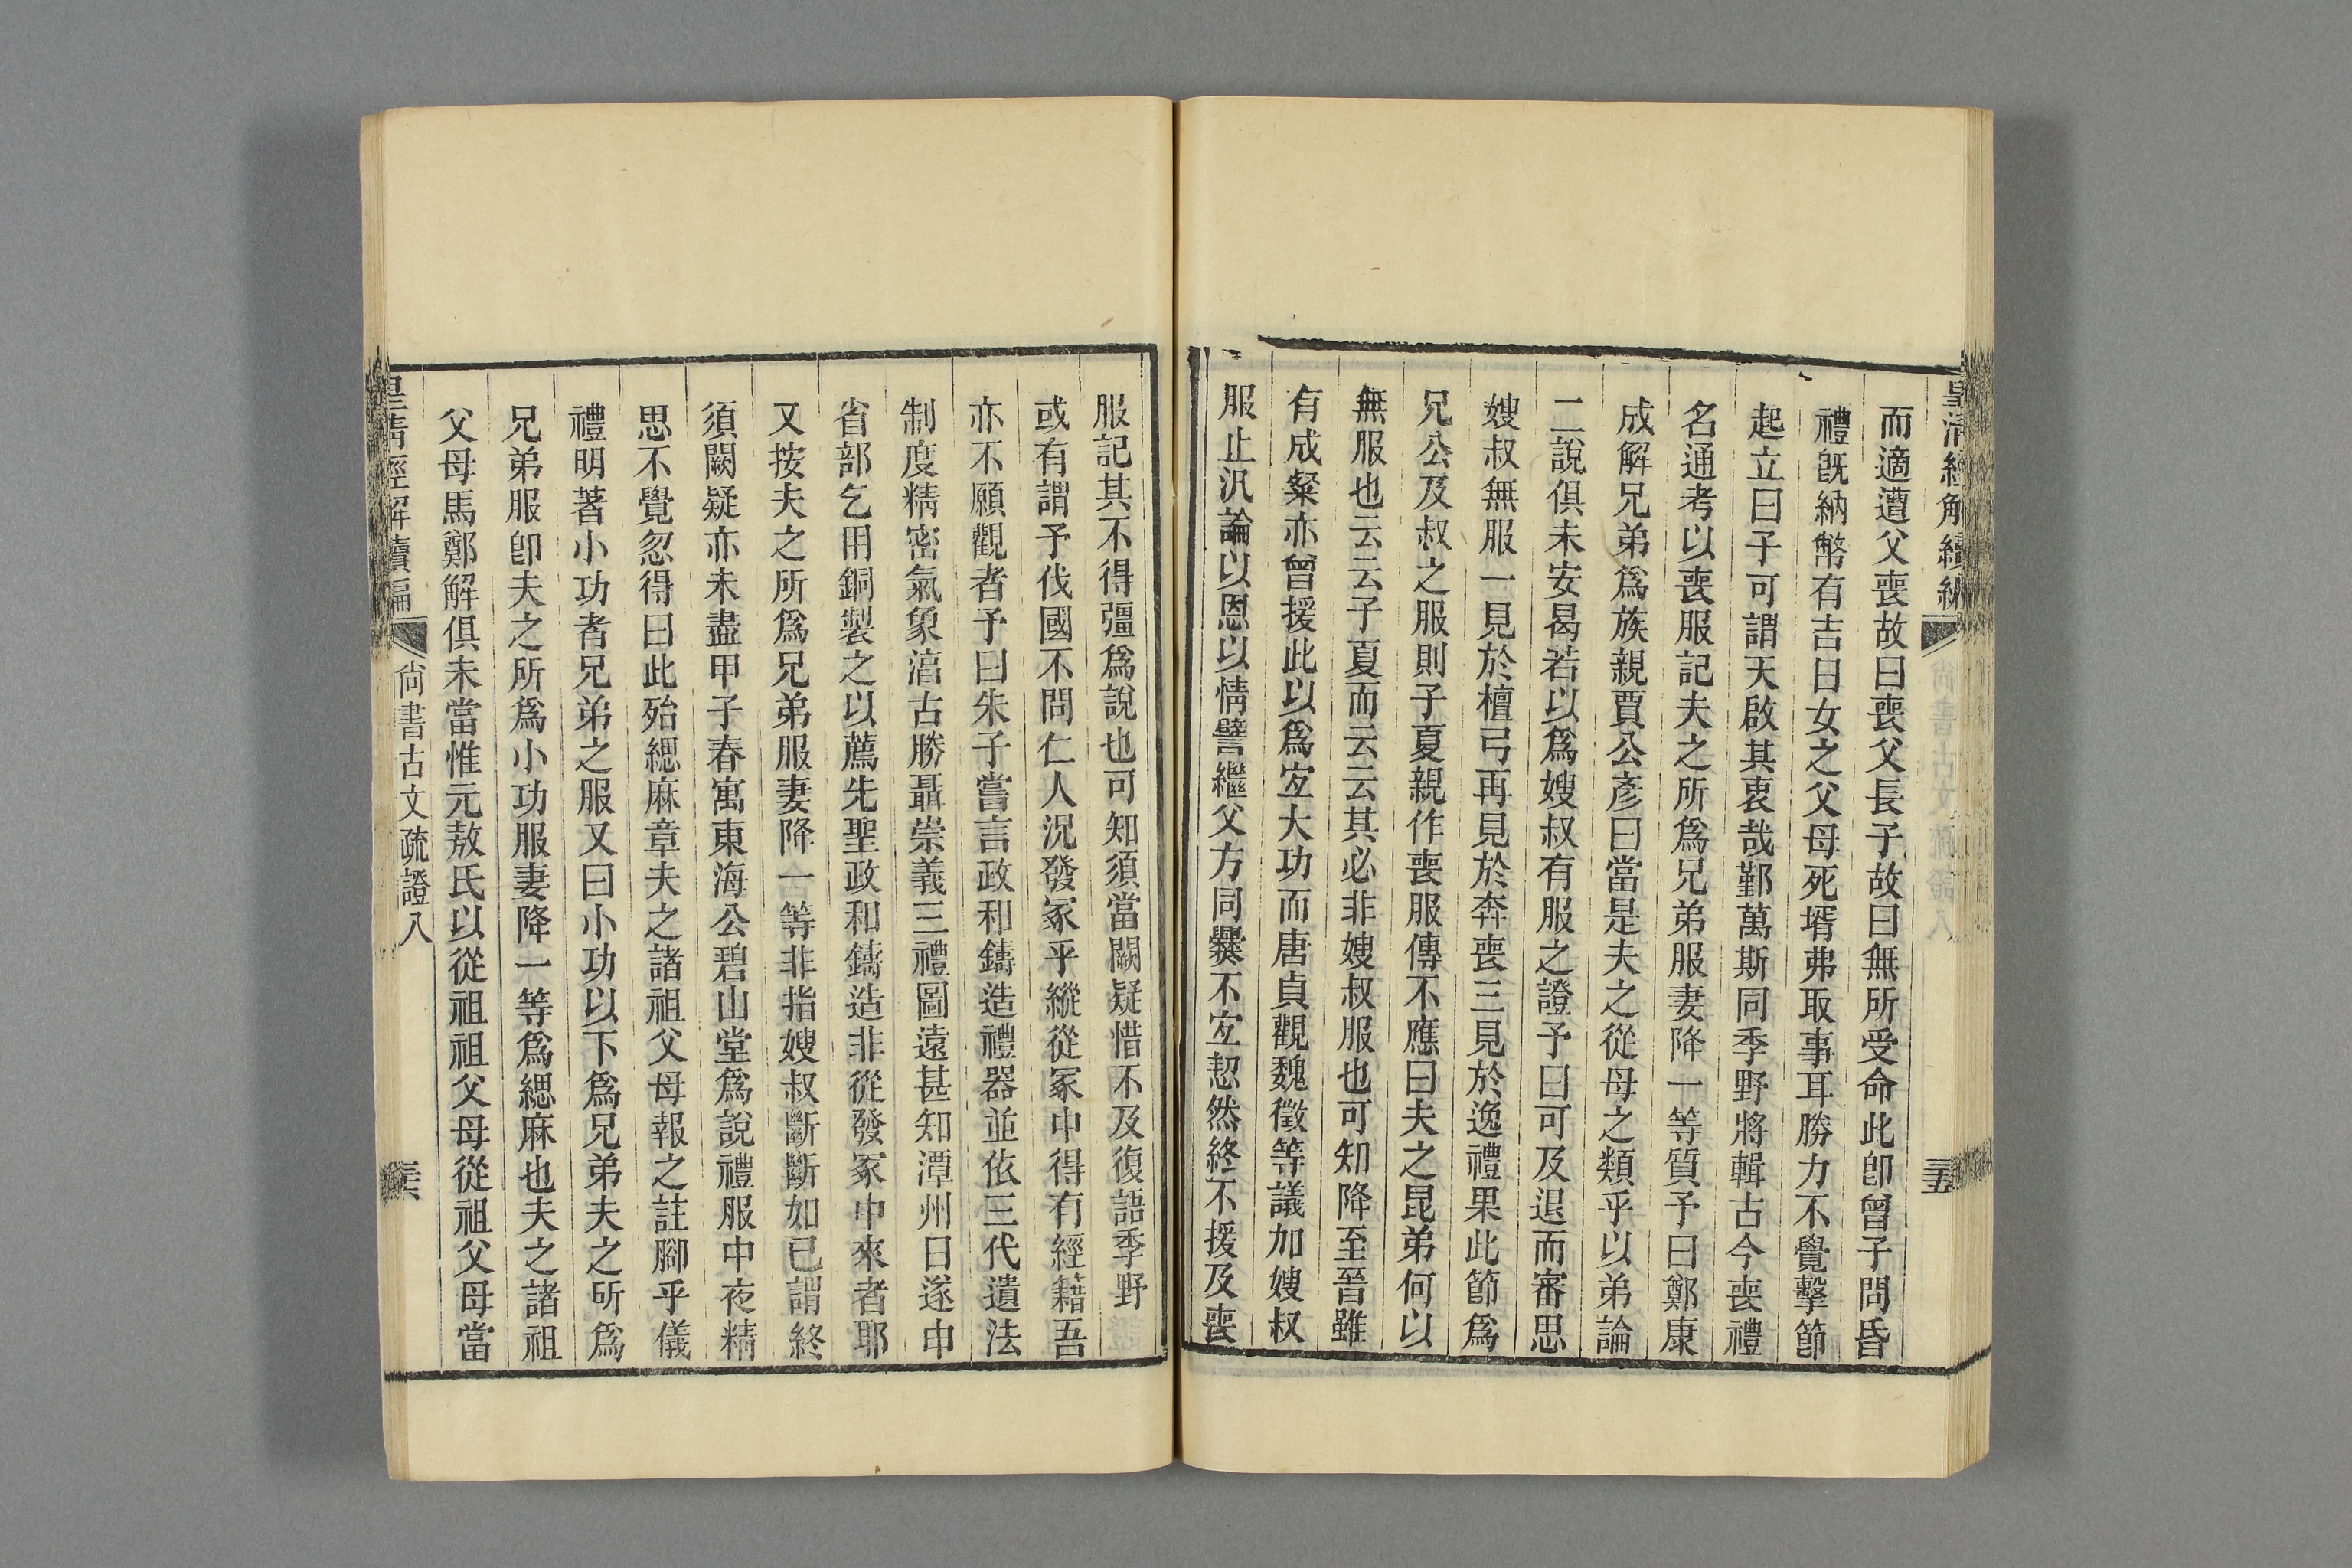 皇清經解續編
三五
而適遭父喪故曰喪父長子故曰無所受命此卽曾子問昏
禮旣納幣有吉日女之父母死壻弗取事耳勝力不覺擊節
起立曰子可謂天啟其衷哉鄞萬斯同季野將輯古今喪禮
名通考以喪服記夫之所爲兄弟服妻降一等質予曰鄭康
成解兄弟爲族親賈公彥曰當是夫之從母之類乎以弟論
二說俱未安曷若以爲嫂叔有服之證予曰可及退而審思
嫂叔無服一見於檀弓再見於奔喪三見於逸禮果此節爲
兄公及叔之服則子夏親作喪服傳不應曰夫之昆弟何以
無服也云云子夏而云云其必非嫂叔服也可知降至晉雖
有成粲亦曾援此以爲宐大功而唐貞觀魏徵等議加嫂叔
服止汎論以恩以情譬繼父方同爨不宐恝然終不援及喪
服記其不得彊爲說也可知須當闕疑惜不及復語季野
或有謂予伐國不問仁人況發冢乎縱從冢中得有經籍吾
亦不願觀者予曰朱子嘗言政和鑄造禮器並依三代遺法
制度精密氣象湻古勝聶崇義三禮圖遠甚知潭州日遂申
省部乞用銅製之以薦先聖政和鑄造非從發冢中來者耶
又按夫之所爲兄弟服妻降一等非指嫂叔斷斷如已謂終
須闕疑亦未盡甲子春寓東海公碧山堂爲說禮服中夜精
思不覺忽得曰此殆緦麻章夫之諸祖父母報之註腳乎儀
禮明著小功者兄弟之服又曰小功以下爲兄弟夫之所爲
兄弟服卽夫之所爲小功服妻降一等爲緦麻也夫之諸祖
父母馬鄭解俱未當惟元敖氏以從祖祖父母從祖父母當
皇清經解續編
尙書古文疏證八
三六